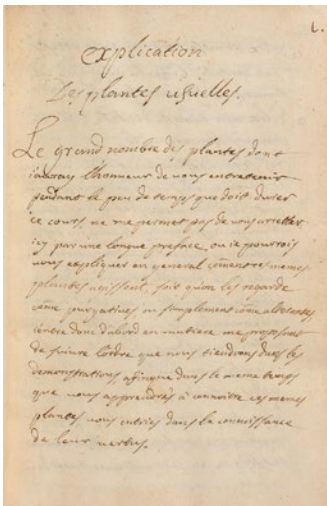 1.
Explication
Des plantes usuelles.
Le grand nombre des plantes dont
j'auray l'honneur de vous entretenir
pendant le peu de temps que doit durer
ce cours, ne me permet pas de vous arretter
icy par une longue preface, ou ie pourrois
vous expliquer en general comment ces memes
plantes agissent, soit qu'on les regarde
come purgatives ou simplement come alterantes
j'entre donc d'abord en matiere me proposant
de suivre l'ordre que nous tiendrons dans les
demonstrations afin que dans le meme temps
que vous apprendrés à connoitre ces memes
plantes vous entriés dans la connoissance
de leur vertus.